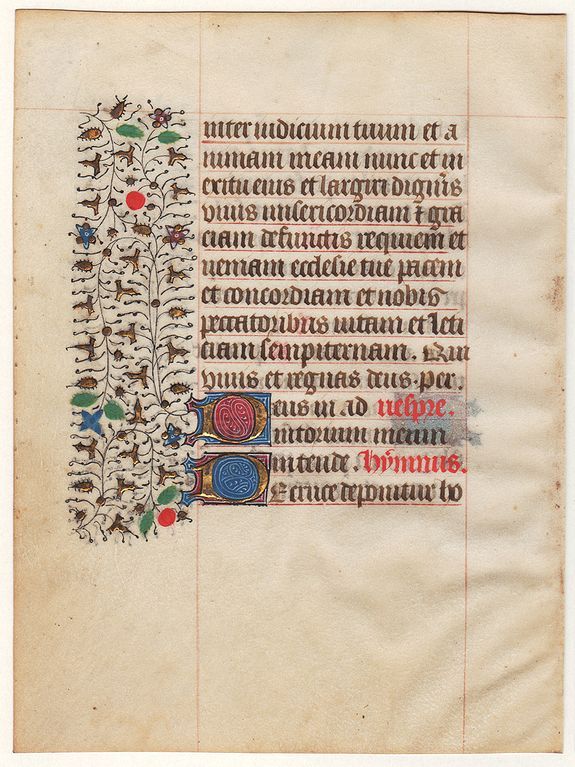 inter iudicium tuum et a
nimam meam nunc et in
exitu eius et largiri digneris
viuis misericordiam ⁊ gra
ciam defunctis requiem et
ueniam ecclesie tue pacem
et concordiam et nobis
peccatoribus uitam et leti
ciam sempiternam. Qui
viuis et regnas deus. per.
Deus in ad uespre.
iutorium meum
intende. hỹmnus.
De cruce deponitur ho